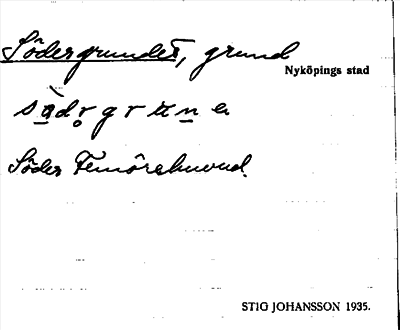 Södergrundet, grund
Nyköpings stad
Söder Femörehuvud.
STIG JOHANSSON 1935.